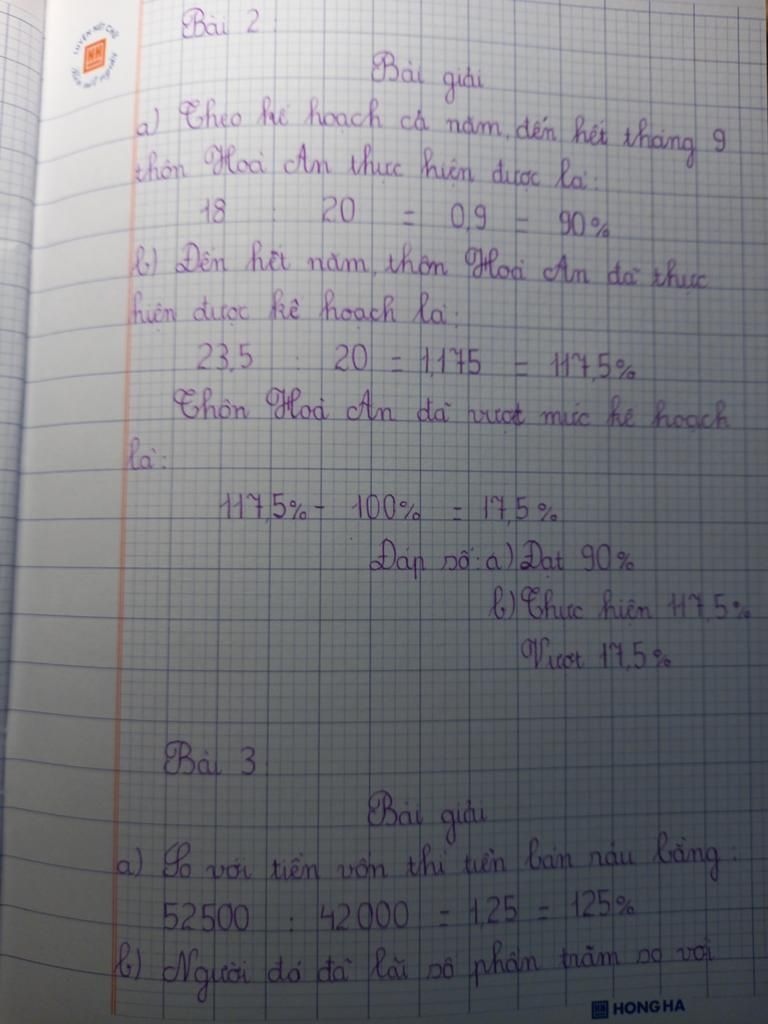 LUYỆN NÉT CHỮ
RÈN NẾT NGƯỜI
Bài 2:
Bài giải
a) Theo kế hoạch cả năm, đến hết tháng 9
thôn Hoà An thực hiện được là:
18 : 20 = 0,9 = 90%
b) Đến hết năm, thôn Hoà An đã thực
hiện được kế hoạch là:
23,5 : 20 = 1,175 = 117,5%
Thôn Hoà An đã vượt mức kế hoạch
là:
117,5% - 100% = 17,5%
Đáp số: a) Đạt 90%
b) Thực hiện 117,5%
Vượt 17,5%
Bài 3:
Bài giải
a) So với tiền vốn thì tiền bán rau bằng:
52500 : 42000 = 1,25 = 125%
b) Người đó đã lãi số phần trăm so với
HONG HA